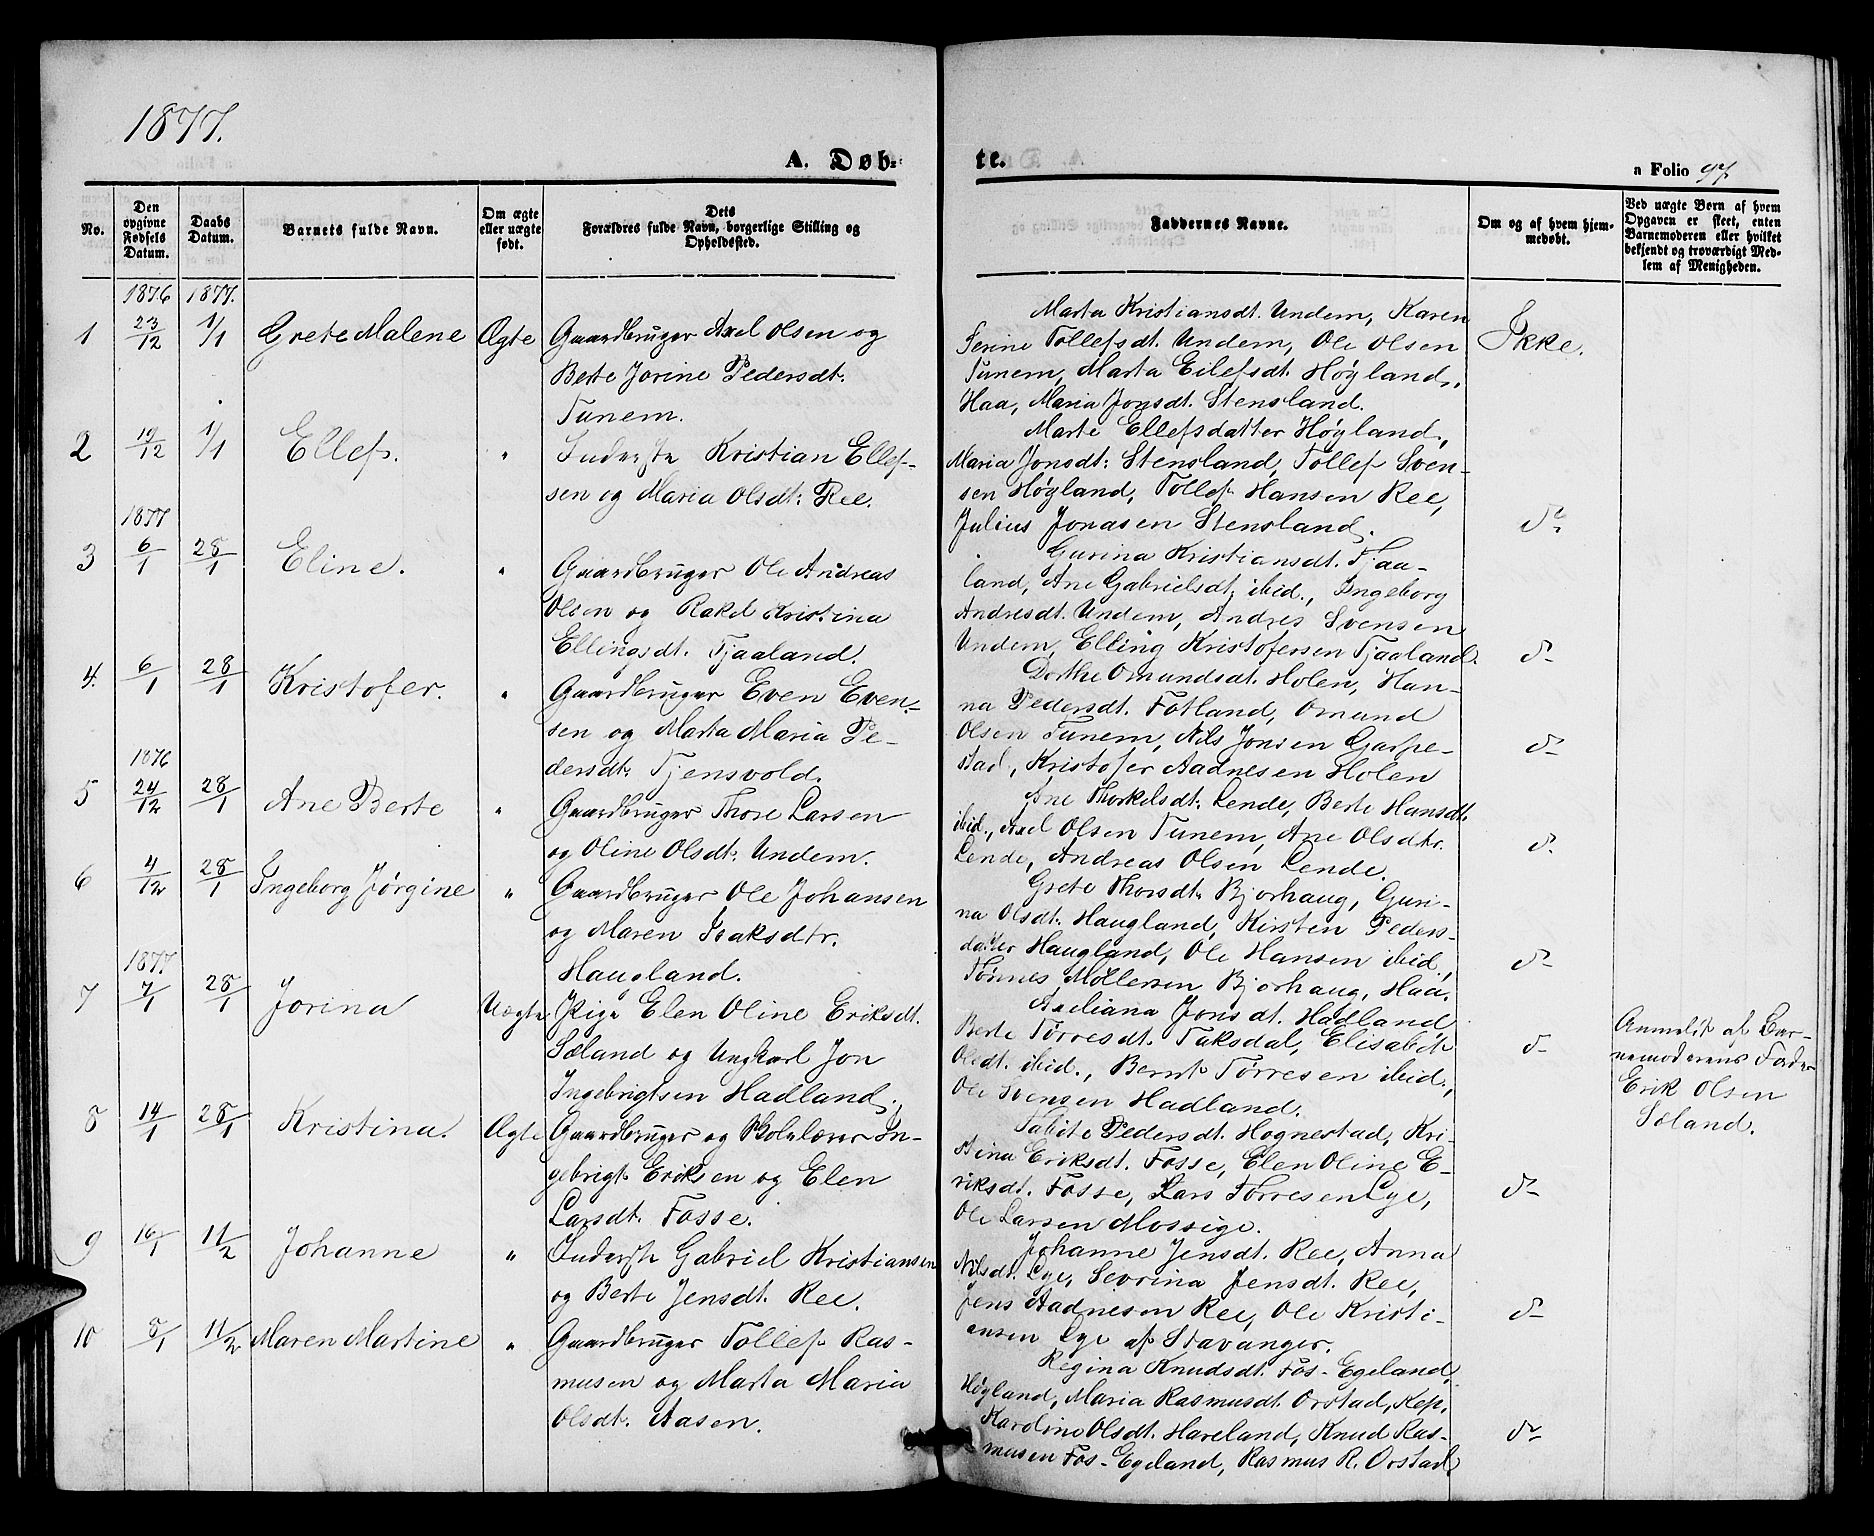 1877.
A. Døb-
te.
n Folio 97
No.
Den opgivne Fødsels Datum.
Daabs Datum.
Barnets fulde Navn.
Om ægte eller uægte født.
Dets Forældres fulde Navn, borgerlige Stilling og Opholdssted.
Faddernes Navne.
Om og af hvem hjemmedøbt.
Ved uægte Børn af hvem Opgaven er skeet, enten Barnemoderen eller hvilket bekjendt og troværdigt Medlem af Menigheden.
1876 1877.
1 23/12 1/1 Grete Malene Ægte Gaardbruger Axel Olsen og
Berte Jorine Pedersdt.
Tunem.
Marta Kristiansdt. Undem, Karen
Serine Tollefsdt. Undem, Ole Olsen
Tunem, Marta Eilefsdt. Høyland,
Haa, Maria Jonsdt. Stensland.
Ikke.
2 19/12 1/1 Ellef. " Inderste Kristian Ellef-
sen og Maria Olsdt: Ree.
Marte Ellefsdatter Høyland,
Maria Jonsdt: Stensland, Tollef Sven-
sen Høyland, Tollef Hansen Ree,
Julius Jonasen Stensland.
d-
1877
3 6/1 28/1 Eline. " Gaardbruger Ole Andreas
Olsen og Rakel Kristina
Ellingsdt. Tjaaland.
Gurina Kristiansdt. Tjaa-
land, Ane Gabrielsdt. ibid., Ingeborg
Andresdt. Undem, Andres Svensen
Undem, Elling Kristofersen Tjaaland.
d-
4. 6/1 28/1 Kristofer. " Gaardbruger Even Even-
sen og Marta Maria Pe-
dersdt: Tjensvold.
Dorthe Omundsdt. Holen, Han-
na Pedersdt. Fotland, Omund
Olsen Tunem, Nils Jonsen Garpe-
stad, Kristofer Aadnesen Holen
d-
1876
5 24/12 28/1 Ane Berte " Gaardbruger Thore Larsen
og Oline Olsdt. Undem.
Ane Thorkelsdt. Lende, Berte Hansdt.
ibid., Axel Olsen Tunem, Ane Olsdtr.
Lende, Andreas Olsen Lende.
d-
6 4/12 28/1 Ingeborg Jørgine " Gaardbruger Ole Johansen
og Maren Isaksdtr.
Haugland.
Grete Thorsdt. Bjorhaug, Guri-
na Olsdt. Haugland, Kirsten Peders-
datter Haugland, Ole Hansen ibid,
Tønnes Møllersen Bjorhaug, Haa.
d-
1877.
7 7/1 28/1 Jorina Uægte Pige Elen Oline Eriksdt.
Sæland og Ungkarl Jon
Ingebrigtsen Hadland.
Axeliana Jonsdt. Hadland,
Berte Tørresdt. Taksdal, Elisabet
Olsdt. ibid., Bernt Tørresen ibid.,
Ole Svensen Hadland.
d-
Anmeldt af Bar-
nemoderens Fader
Erik Olsen
Sæland.
8 14/1 28/1 Kristina. Ægte Gaardbruger og Skolelærer In-
gebrigt Eriksen og Elen
Larsdt. Fosse.
Tabite Pedersdt. Hognestad, Kri-
stina Eriksdt. Fosse, Elen Oline E-
riksdt. Fosse, Lars Tørresen Lye,
Ole Larsen Mossige.
d-
9 16/1 11/2 Johanne " Inderste Gabriel Kristiansen
og Berte Jensdt. Ree.
Johanne Jensdt. Ree, Anna
Nilsdt. Lye, Sevrina Jensdt. Ree,
Jens Aadnesen Ree, Ole Kristi-
ansen Lye af Stavanger.
d-
10 8/1 11/2 Maren Martine " Gaardbruger Tollef Ras-
musen og Marta Maria
Olsdt. Aasen.
Regina Knudsdt. Fos-Egeland,
Høyland, Maria Rasmusdt. Orstad, Kep,
Karoline Olsdt. Hareland, Knud Ras-
musen Fos-Egeland, Rasmus R. Orstad.
d-